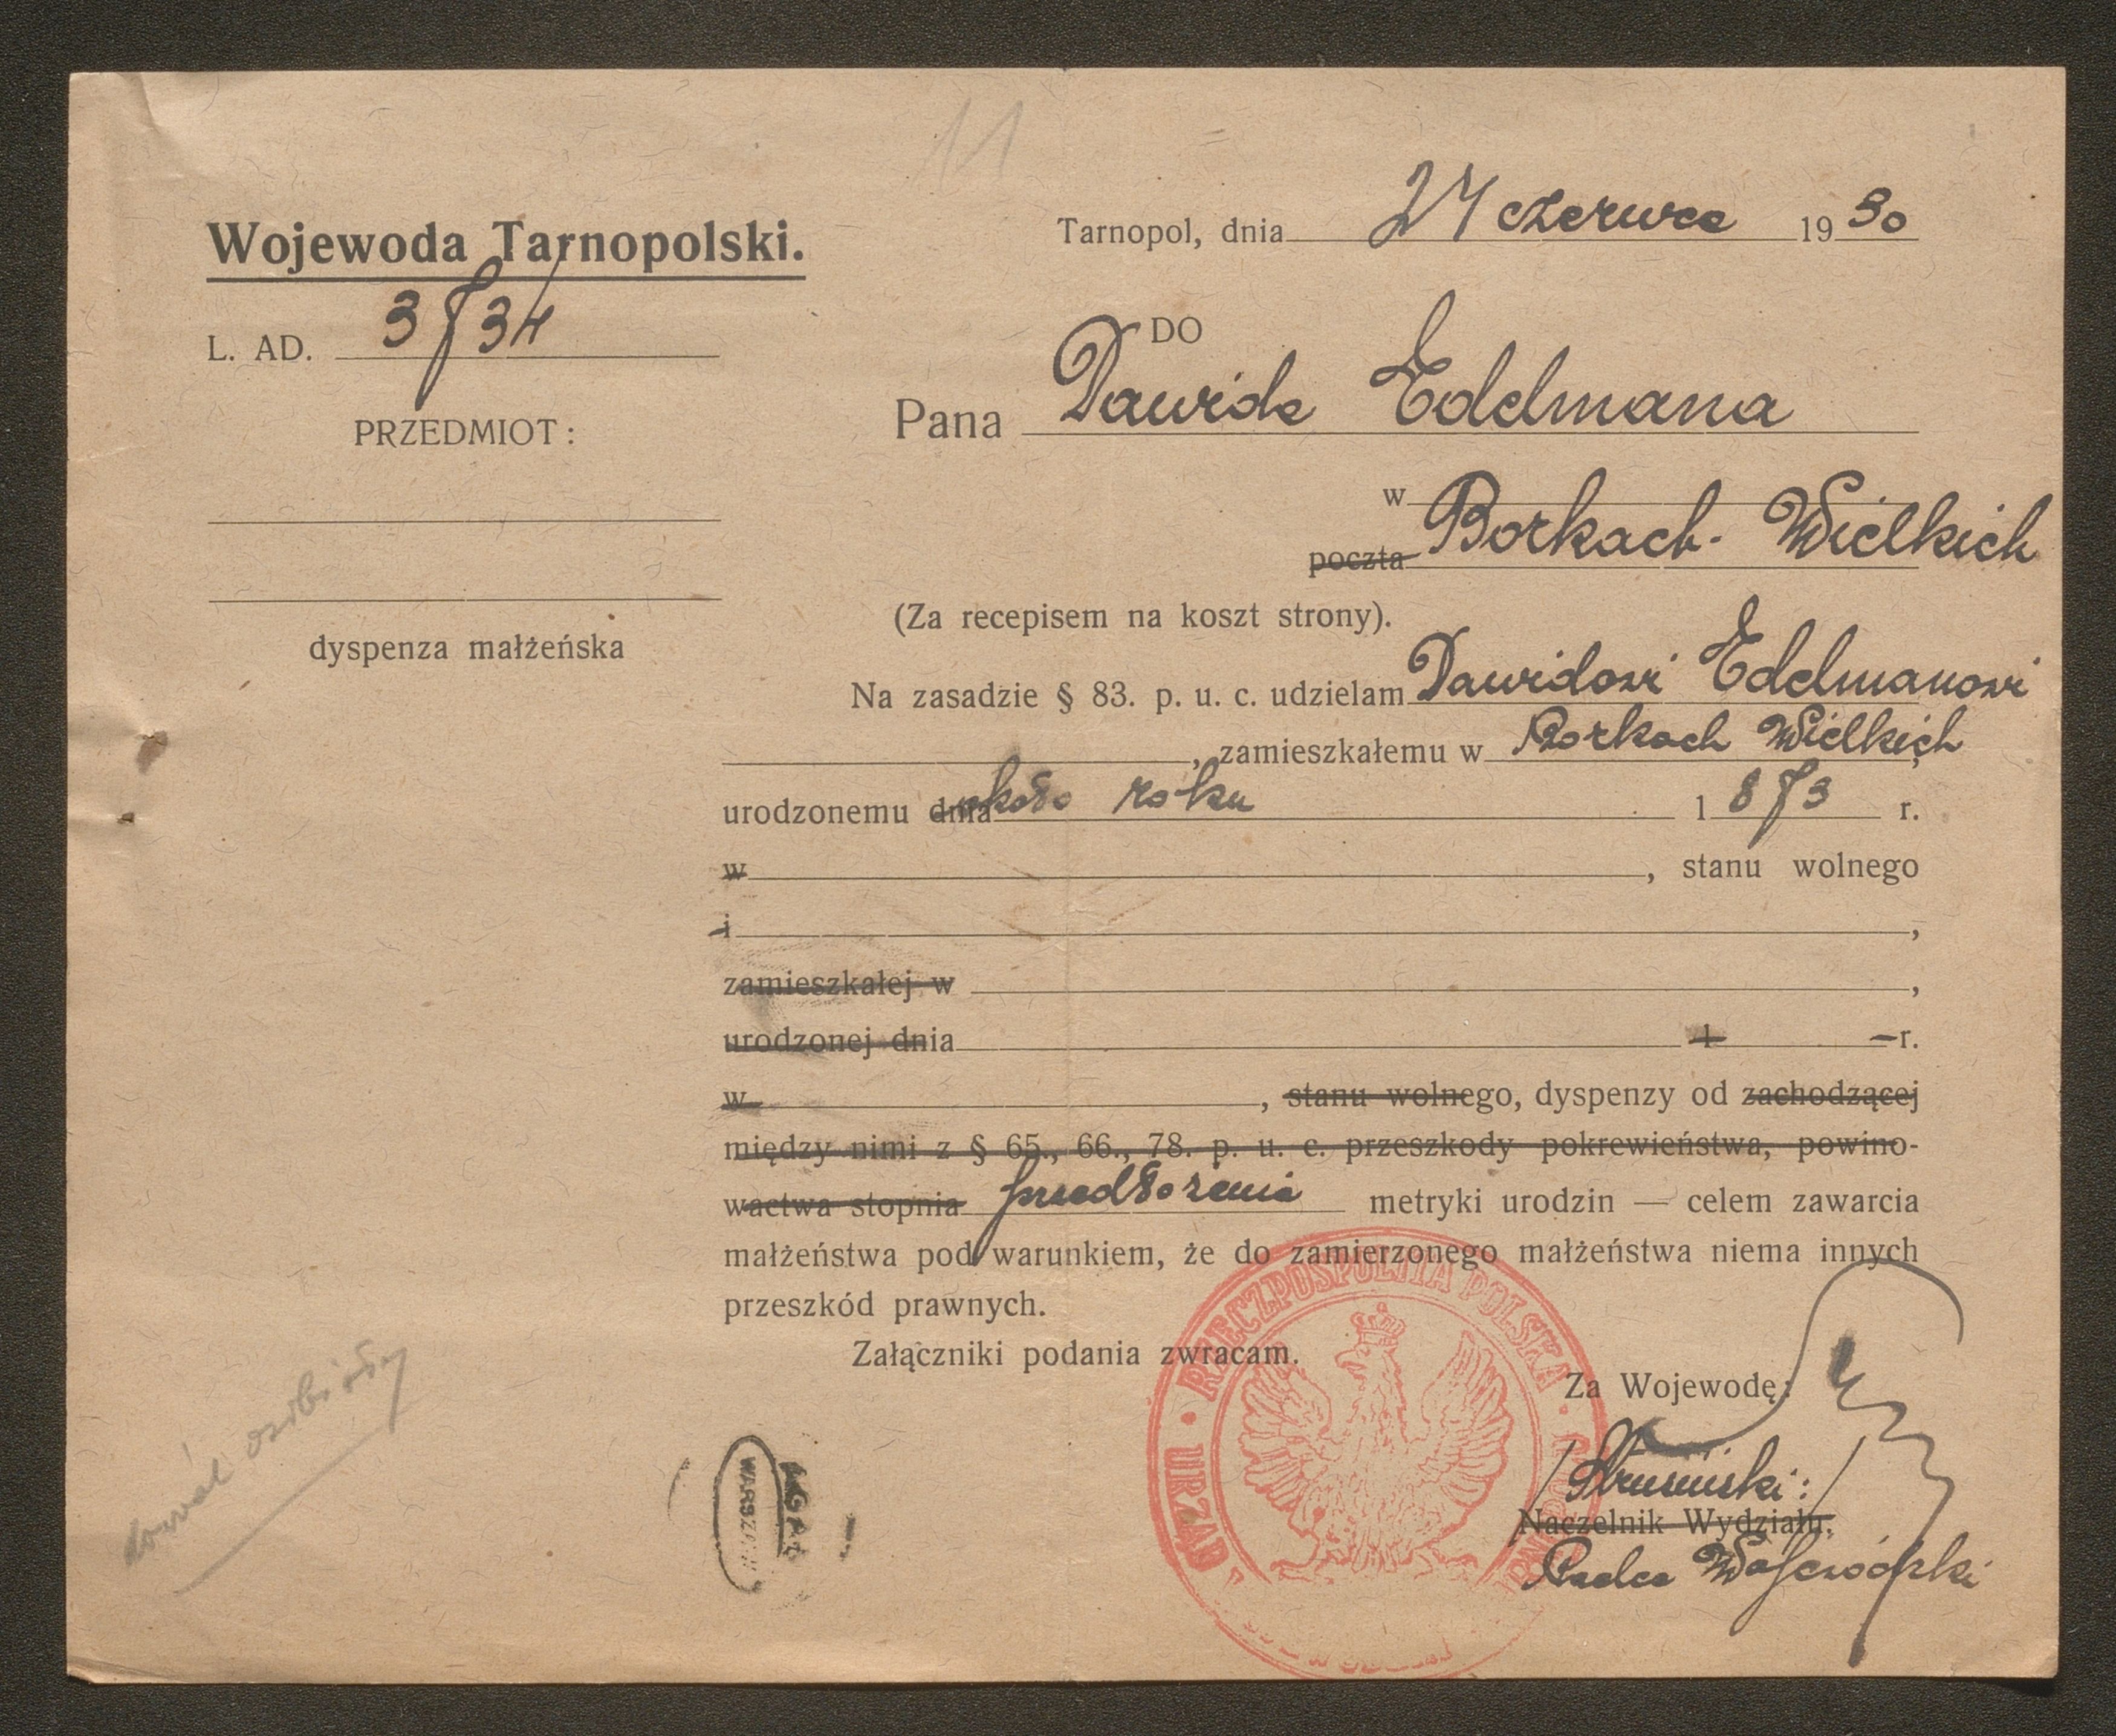 11
Wojewoda Tarnopolski.
Tarnopol, dnia 24 czerwca 1930
L. AD. 3734
DO
PRZEDMIOT:
Pana Dawida Edelmana
w
poczta Borkach-Wielkich
(Za recepisem na koszt strony).
dyspenza małżeńska
Na zasadzie § 83. p. u. c. udzielam Dawidowi Edelmanowi
, zamieszkałemu w Borkach Wielkich,
urodzonemu dnia około roku 1873 r.
w , stanu wolnego
i ,
zamieszkałej w ,
urodzonej dnia 1 r.
w , stanu wolnego, dyspenzy od zachodzącej
między nimi z § 65., 66., 78. p. u. c. przeszkody pokrewieństwa, powino-
wactwa stopnia przedłożenia metryki urodzin — celem zawarcia
małżeństwa pod warunkiem, że do zamierzonego małżeństwa niema innych
przeszkód prawnych.
Załączniki podania zwracam.
RZECZPOSPOLITA POLSKA
URZĄD
Za Wojewodę:
Naczelnik Wydziału.
Radca Wojewódzki
AGAD
WARSZAWA
osobiście